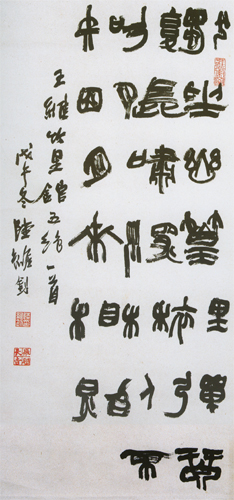 獨坐幽篁里彈琴
復長嘯深林人不
知明月來相照
王維竹里館五絕一首
戊午冬陸維釗